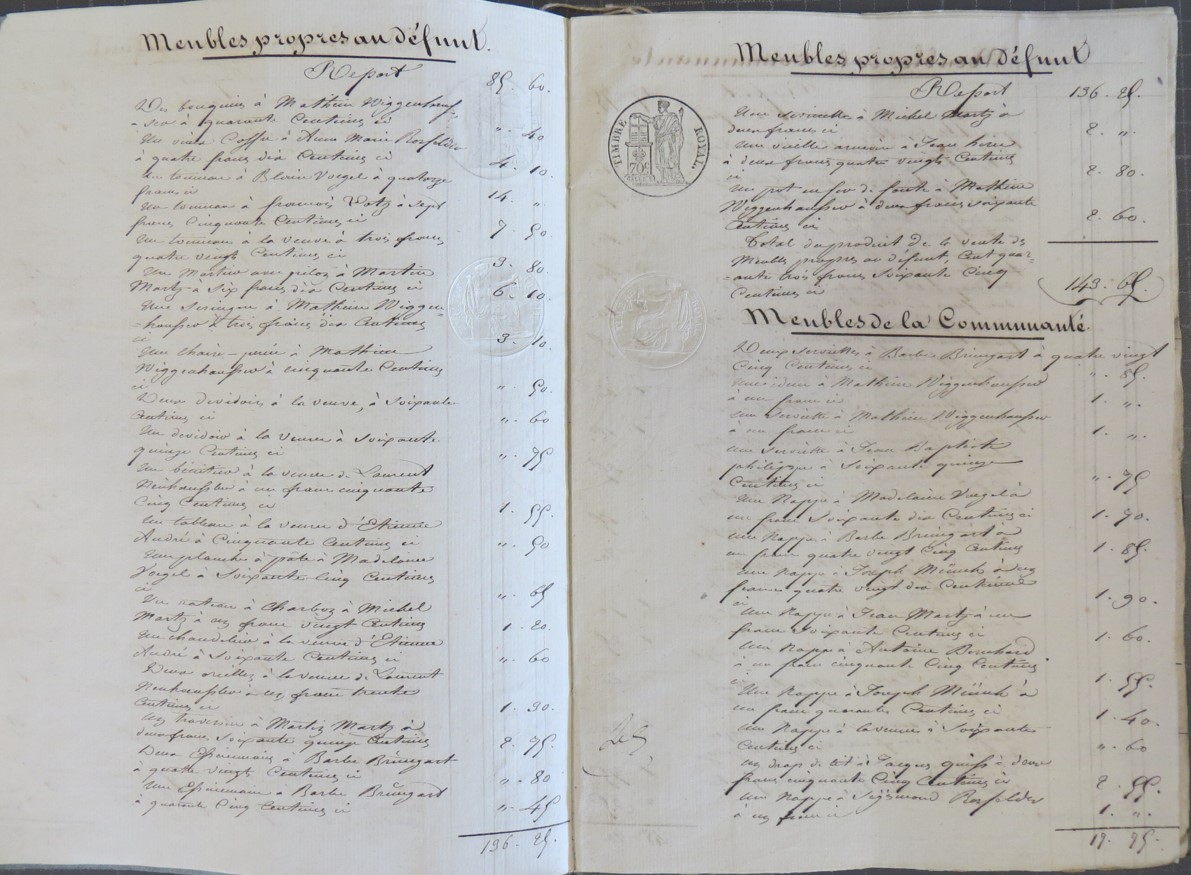 Meubles propres au défunt.
Report 85 60.
Des bouquins à Mathieu Wiggenhauf-
-ser à quarante Centimes ci „ 40
Un vieux Coffre à Anne Marie Rosfelder
à quatre francs dix Centimes ci 4. 10.
un tonneau à Blaise Voegel à quatorze
francs ci 14. „
Un tonneau à francois à Sept
francs Cinquante Centimes ci 7. 50.
Un tonneau à la veuve à trois francs
quatre vingt Centimes ci 3. 80.
Un Mortier avec pilon à Martin
Martz à Six francs dix Centimes ci 6. 10.
Une Seringue à Mathieu Wiggen
-hauser à trois francs dix Centimes
ci 3. 10.
Une chaise-percée à Mathieu
Wiggenhauser à cinquante Centimes
ci „ 50.
Deux devidoirs à la veuve, à Soixante
Centimes ci „ 60
Un devidoir à la veuve à Soixante
quinze Centimes ci „ 75
Un bénitier à la veuve de Laurent
Neuhauser à un franc cinquante
Cinq Centimes ci 1. 55.
Un tableau à la veuve d'Etienne
André à Cinquante Centimes ci „ 50
Une planche à pâte à Madelaine
Voegel à Soixante Cinq Centimes
ci „ 65
Un rateau à Michel
Martz à un franc vingt Centimes 1. 20.
Un chandelier à la veuve d'Etienne
André à Soixante Centimes ci „ 60
Deux oreilles à la veuve de Laurent
Neuhauser à un franc trente
Centimes ci 1. 30.
Un traversin à Martin Martz à
deux francs Soixante quinze Centimes 2. 75.
Deux à Barbe Brüngart
à quatre vingts Centimes ci „ 80
Une à Barbe Brüngart
à quarante Cinq Centimes ci „ 45
136. 25.
Meubles propres au Défunt
Report 136. 25.
TIMBRE ROYAL.
70c
Une à Michel Martz à
deux francs ci 2. „
Une vieille armoire à Jean
à deux francs quatre vingts Centimes
ci 2. 80.
Un pot en fer de fonte à Mathieu
Wiggenhauser à deux francs soixante
Centimes ci 2. 60.
Total du produit de la vente des
Meubles propres au défunt, Cent quar-
-ante trois francs Soixante Cinq
Centimes ci 143. 65.
Meubles de la Communauté.
Deux Serviettes à Barbe Brüngart à quatre vingt
Cinq Centimes ci „ 85.
Une idem à Mathieu Wiggenhauser
à un franc ci 1. „
Une Serviette à Mathieu Wiggenhauser
à un franc ci 1. „
une Serviette à Jean Baptiste
philippe à Soixante quinze
Centimes ci „ 75
Une Nappe à Madelaine Voegel à
un franc Soixante dix Centimes ci 1. 70.
une Nappe à Barbe Brüngart à
un franc quatre vingt Cinq Centimes 1. 85.
une Nappe à Joseph Münch à un
franc quatre vingt dix Centimes
ci 1. 90.
Une Nappe à Jean Martz à un
franc Soixante Centimes ci 1. 60.
Une Nappe à Antoine
à un franc cinquante Cinq Centimes
ci 1. 55.
Une Nappe à Joseph Münch à
un franc quarante Centimes ci 1. 40.
une Nappe à la veuve à Soixante
Centimes ci „ 60
un drap de lit à Jacques à deux
francs cinquante Cinq Centimes ci 2. 55.
une Nappe à Sigismond Rosfelder
à un franc ci 1. „